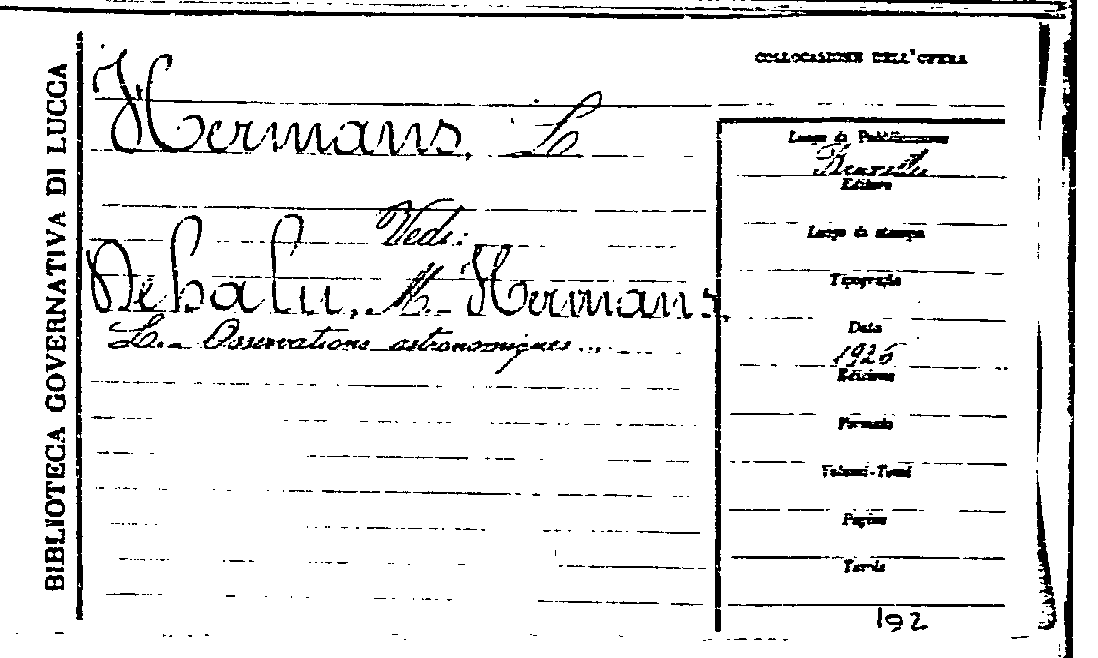 BIBLIOTECA GOVERNATIVA DI LUCCA
COLLOCASIONE DELL'OPERA
Hermans, L
Vedi:
Dehalu, M. Hermans,
L. - Osservations astronomiques...
Luogo di Pubblicazione
Bruxelles
Editore
Luogo di stampa
Tipografia
Data
1926
Edizione
Formato
Volumi-Tomi
Pagine
Tavole
192